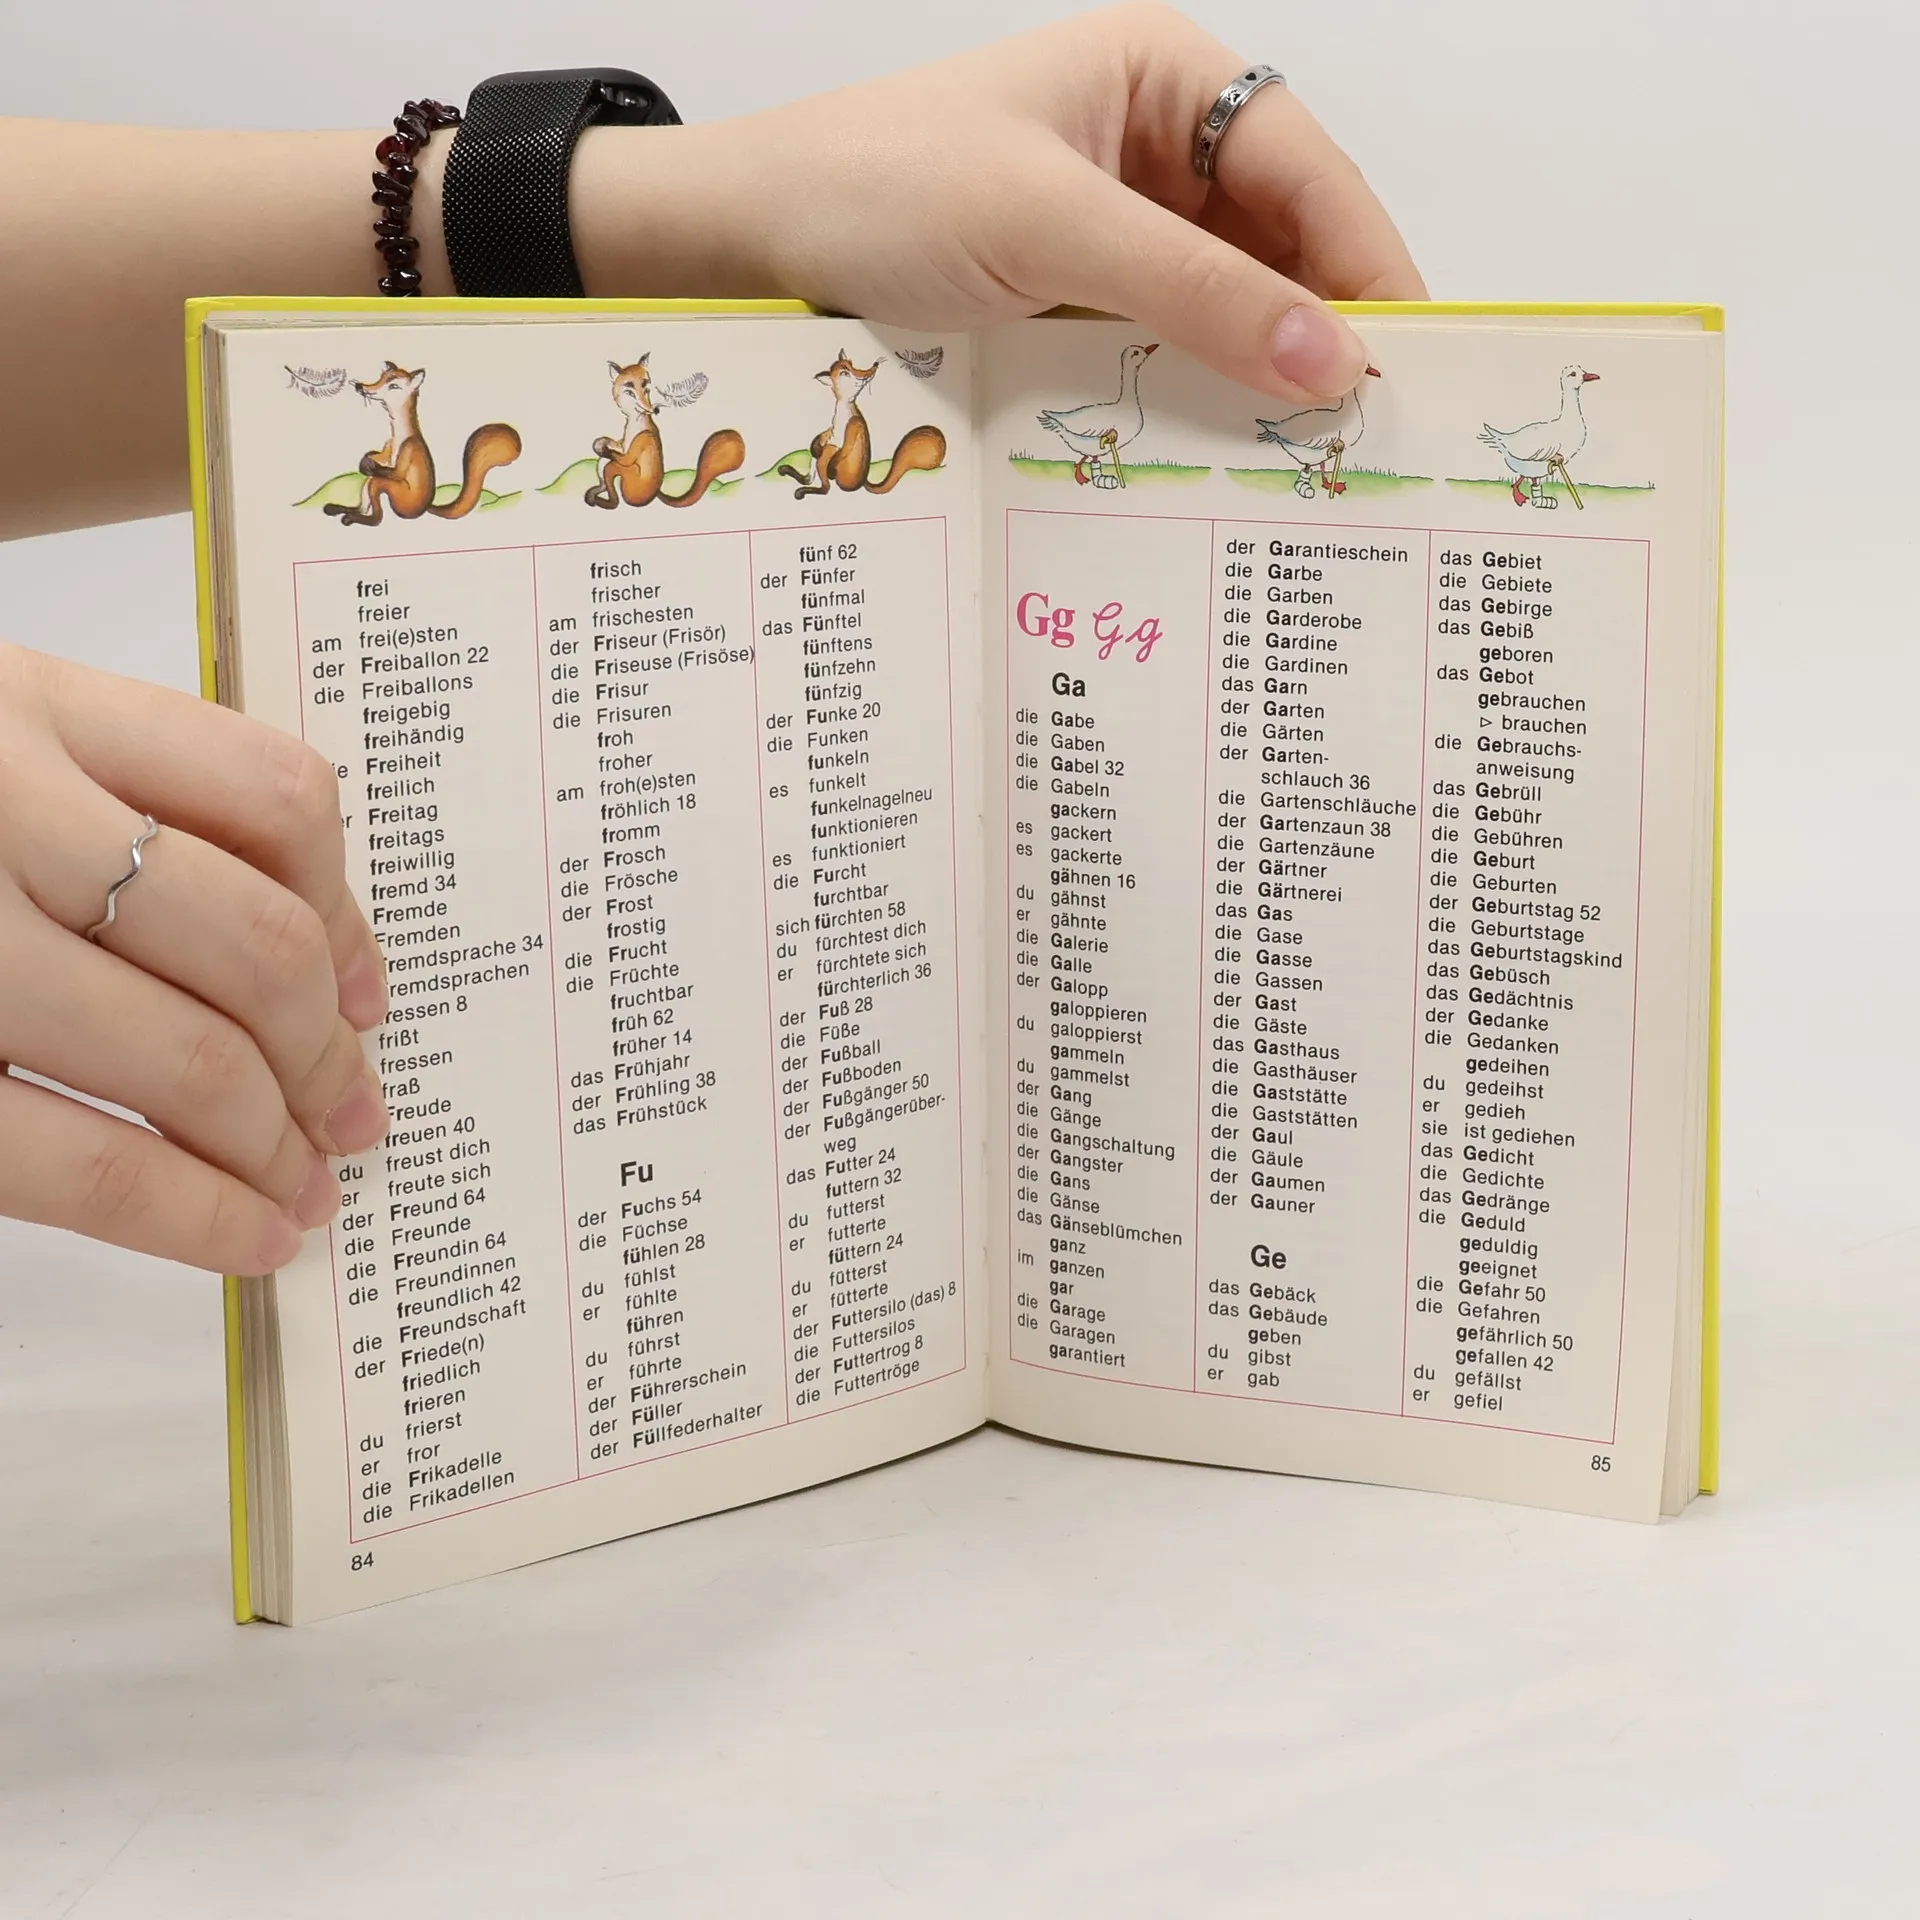 frei
freier
am frei(e)sten
der Freiballon 22
die Freiballons
freigebig
freihändig
Freiheit
freilich
Freitag
freitags
freiwillig
fremd 34
Fremde
34
frißt
fressen
fraß
Freude
freuen 40
du freust dich
er freute sich
der Freund 64
die Freunde
die Freundin 64
die Freundinnen
freundlich 42
die Freundschaft
der Friede(n)
friedlich
frieren
du frierst
er fror
die Frikadelle
die Frikadellen
frisch
frischer
am frischesten
der Friseur (Frisör)
die Friseuse (Frisöse)
die Frisur
die Frisuren
froh
froher
am froh(e)sten
fröhlich 18
fromm
der Frosch
die Frösche
der Frost
frostig
die Frucht
die Früchte
fruchtbar
früh 62
früher 14
das Frühjahr
der Frühling 38
das Frühstück
Fu
der Fuchs 54
die Füchse
fühlen 28
du fühlst
er fühlte
führen
du führst
er führte
der Führerschein
der Füller
der Füllfederhalter
fünf 62
der Fünfer
fünfmal
das Fünftel
fünftens
fünfzehn
fünfzig
der Funke 20
die Funken
funkeln
es funkelt
funkelnagelneu
funktionieren
es funktioniert
die Furcht
furchtbar
sich fürchten 58
du fürchtest dich
er fürchtete sich
fürchterlich 36
der Fuß 28
die Füße
der Fußball
der Fußboden
der Fußgänger 50
der Fußgängerüber-
weg
das Futter 24
futtern 32
du futterst
er futterte
füttern 24
du fütterst
er fütterte
der Futtersilo (das) 8
die Futtersilos
der Futtertrog 8
die Futtertröge
84
Gg Gg
Ga
die Gabe
die Gaben
die Gabel 32
die Gabeln
gackern
es gackert
es gackerte
gähnen 16
du gähnst
er gähnte
die Galerie
die Galle
der Galopp
galoppieren
du galoppierst
gammeln
du gammelst
der Gang
die Gänge
die Gangschaltung
der Gangster
die Gans
die Gänse
das Gänseblümchen
ganz
im ganzen
gar
die Garage
die Garagen
garantiert
der Garantieschein
die Garbe
die Garben
die Garderobe
die Gardine
die Gardinen
das Garn
der Garten
die Gärten
der Garten-
schlauch 36
die Gartenschläuche
der Gartenzaun 38
die Gartenzäune
der Gärtner
die Gärtnerei
das Gas
die Gase
die Gasse
die Gassen
der Gast
die Gäste
das Gasthaus
die Gasthäuser
die Gaststätte
die Gaststätten
der Gaul
die Gäule
der Gaumen
der Gauner
Ge
das Gebäck
das Gebäude
geben
du gibst
er gab
das Gebiet
die Gebiete
das Gebirge
das Gebiß
geboren
das Gebot
gebrauchen
▷ brauchen
die Gebrauchs-
anweisung
das Gebrüll
die Gebühr
die Gebühren
die Geburt
die Geburten
der Geburtstag 52
die Geburtstage
das Geburtstagskind
das Gebüsch
das Gedächtnis
der Gedanke
die Gedanken
gedeihen
du gedeihst
er gedieh
sie ist gediehen
das Gedicht
die Gedichte
das Gedränge
die Geduld
geduldig
geeignet
die Gefahr 50
die Gefahren
gefährlich 50
gefallen 42
du gefällst
er gefiel
85